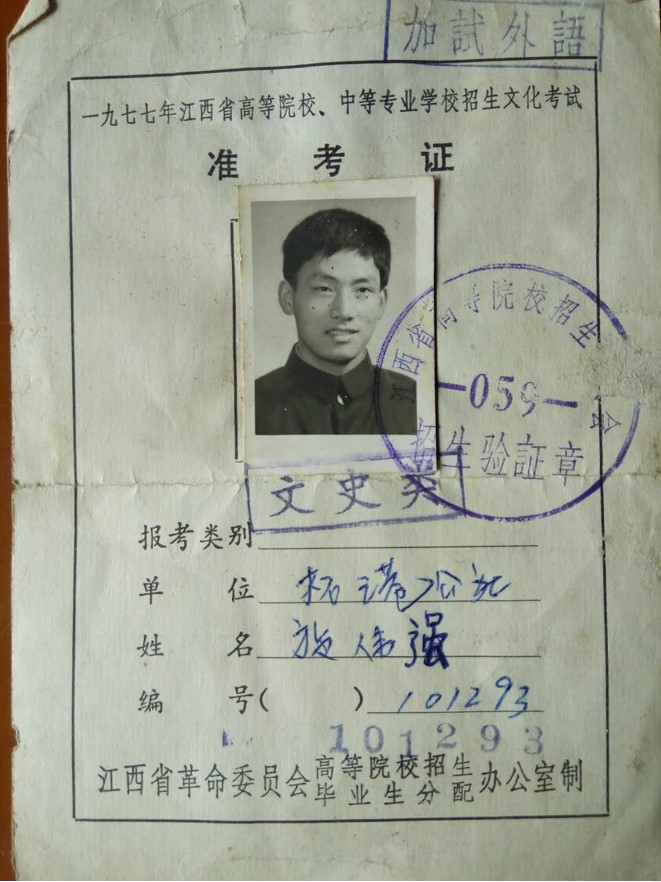 加試外語
一九七七年江西省高等院校、中等专业学校招生文化考试
准考证
江西省高等院校招生 会
—059—
招生验証章
文史类
报考类别
单位 柘港公社
姓名 强
编号( ) 101293
101293
江西省革命委员会高等院校招生毕业生分配办公室制